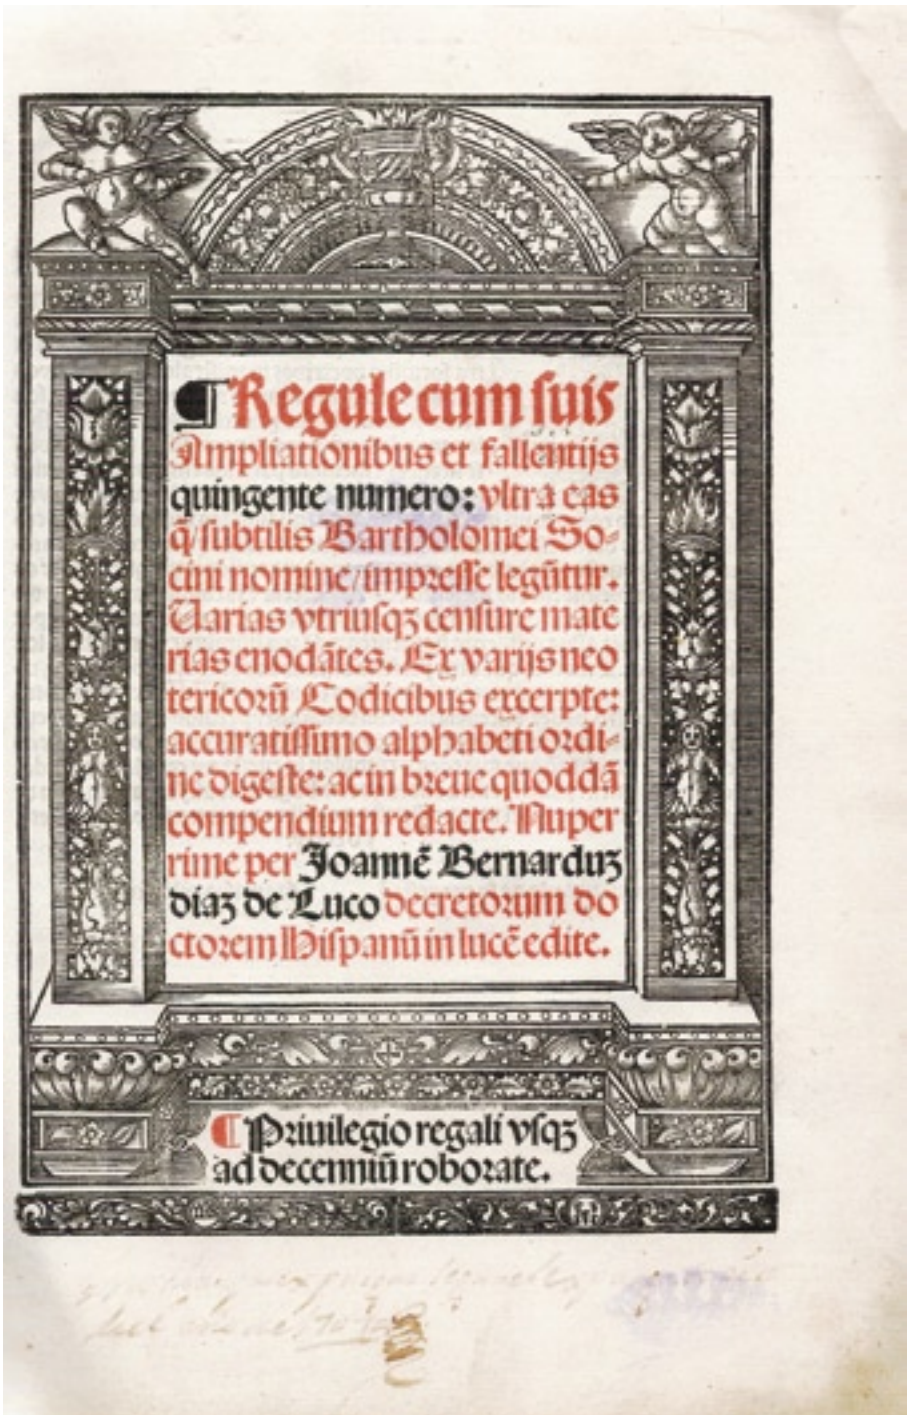 ¶ Regule cum suis
Ampliationibus et fallentijs
quingente numero: vltra eas
q̃ subtilis Bartholomei So-
cini nomine impresse legũtur.
Uarias vtriusqꝫ censure mate
rias enodãtes. Ex varijs neo
tericorũ Codicibus excerpte:
accuratissimo alphabeti ordi-
ne digeste: ac in breue quoddã
compendium redacte. Nuper
rime per Joannẽ Bernarduꝫ
diaz de Luco decretorum do
ctorem Hispanũ in lucẽ edite.
¶ Priuilegio regali vsqꝫ
ad decenniũ roborate.